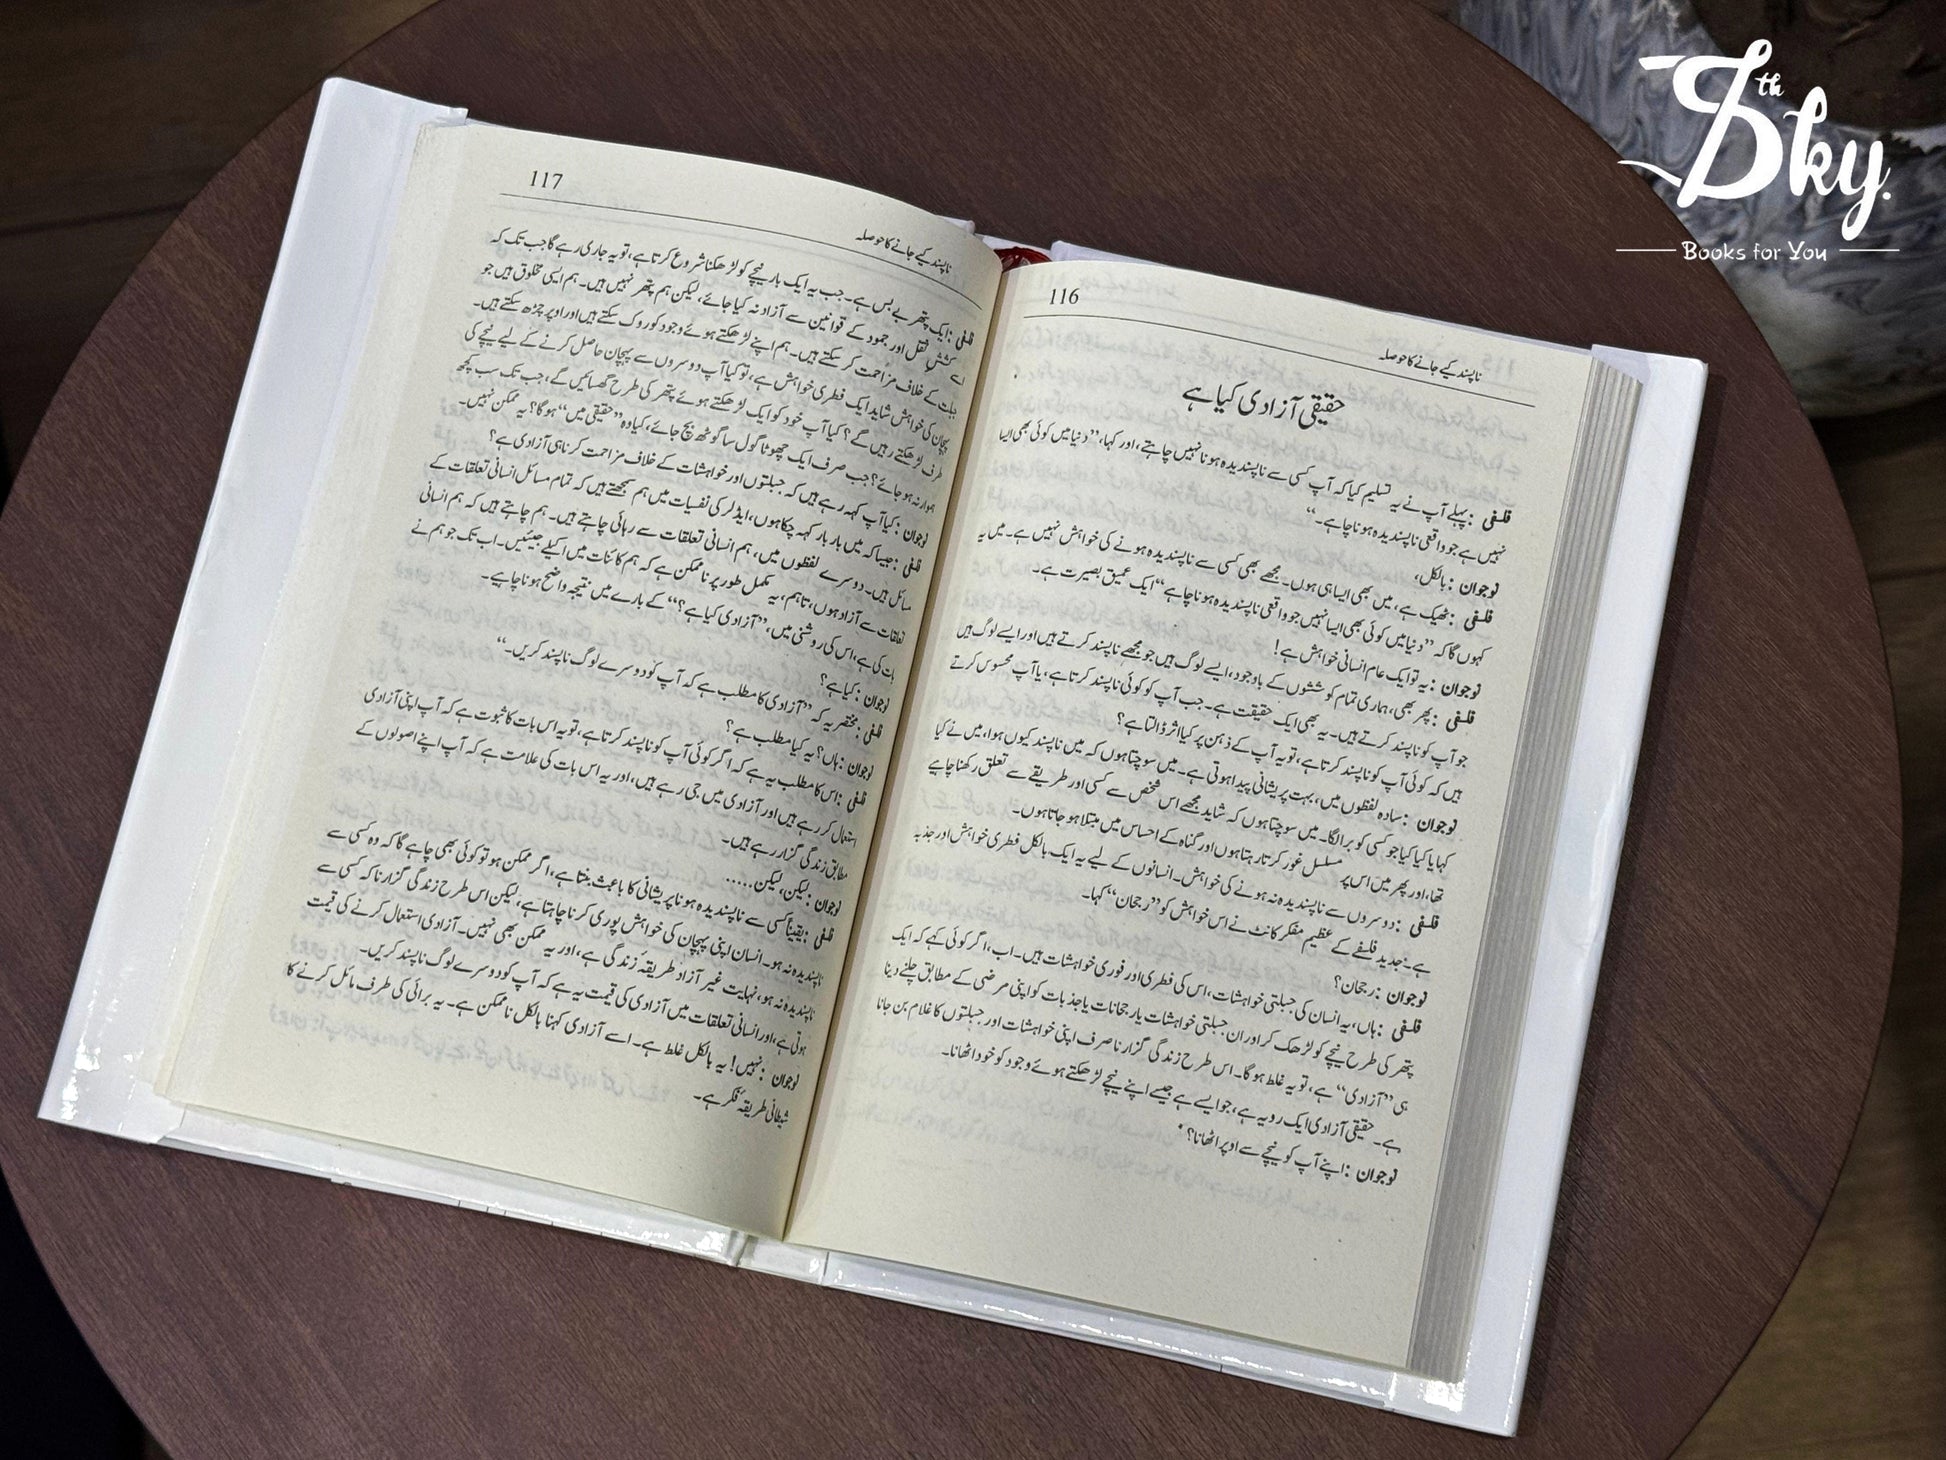 116
ناپسند کیے جانے کا حوصلہ
حقیقی آزادی کیا ہے
فلسفی : پہلے آپ نے یہ تسلیم کیا کہ آپ کسی سے ناپسندیدہ ہونا نہیں چاہتے، اور کہا، ”دنیا میں کوئی بھی ایسا
نہیں ہے جو واقعی ناپسندیدہ ہونا چاہے۔“
نوجوان : بالکل،
فلسفی : ٹھیک ہے، میں بھی ایسا ہی ہوں۔ مجھے بھی کسی سے ناپسندیدہ ہونے کی خواہش نہیں ہے۔ میں یہ
کہوں گا کہ ”دنیا میں کوئی بھی ایسا نہیں جو واقعی ناپسندیدہ ہونا چاہے“ ایک عمیق بصیرت ہے۔
نوجوان : یہ تو ایک عام انسانی خواہش ہے!
فلسفی : پھر بھی، ہماری تمام کوششوں کے باوجود، ایسے لوگ ہیں جو مجھے ناپسند کرتے ہیں اور ایسے لوگ ہیں
جو آپ کو ناپسند کرتے ہیں۔ یہ بھی ایک حقیقت ہے۔ جب آپ کو کوئی ناپسند کرتا ہے، یا آپ محسوس کرتے
ہیں کہ کوئی آپ کو ناپسند کرتا ہے، تو یہ آپ کے ذہن پر کیا اثر ڈالتا ہے؟
نوجوان : سادہ لفظوں میں، بہت پریشانی پیدا ہوتی ہے۔ میں سوچتا ہوں کہ میں ناپسند کیوں ہوا، میں نے کیا
کہا یا کیا کیا جو کسی کو برا لگا۔ میں سوچتا ہوں کہ شاید مجھے اس شخص سے کسی اور طریقے سے تعلق رکھنا چاہیے
تھا، اور پھر میں اس پر مسلسل غور کرتا رہتا ہوں اور گناہ کے احساس میں مبتلا ہو جاتا ہوں۔
فلسفی : دوسروں سے ناپسندیدہ نہ ہونے کی خواہش۔ انسانوں کے لیے یہ ایک بالکل فطری خواہش اور جذبہ
ہے۔ جدید فلسفے کے عظیم مفکر کانٹ نے اس خواہش کو ”رجحان“ کہا۔
نوجوان : رجحان؟
فلسفی : ہاں، یہ انسان کی جبلتی خواہشات، اس کی فطری اور فوری خواہشات ہیں۔ اب، اگر کوئی کہے کہ ایک
پتھر کی طرح نیچے کو لڑھک کر اور ان جبلتی خواہشات یا رجحانات یا جذبات کو اپنی مرضی کے مطابق چلنے دینا
ہی ”آزادی“ ہے، تو یہ غلط ہوگا۔ اس طرح زندگی گزارنا صرف اپنی خواہشات اور جبلتوں کا غلام بن جانا
ہے۔ حقیقی آزادی ایک رویہ ہے، جو ایسے ہے جیسے اپنے نیچے لڑھکتے ہوئے وجود کو خود اٹھانا۔
نوجوان : اپنے آپ کو نیچے سے اوپر اٹھانا؟
117
ناپسند کیے جانے کا حوصلہ
فلسفی : ایک پتھر بے بس ہے۔ جب یہ ایک بار نیچے کو لڑھکنا شروع کرتا ہے، تو یہ جاری رہے گا جب تک کہ
اسے کشش ثقل اور جمود کے قوانین سے آزاد نہ کیا جائے، لیکن ہم پتھر نہیں ہیں۔ ہم ایسی مخلوق ہیں جو
جبلت کے خلاف مزاحمت کر سکتے ہیں۔ ہم اپنے لڑھکتے ہوئے وجود کو روک سکتے ہیں اور اوپر چڑھ سکتے ہیں۔
پہچان کی خواہش شاید ایک فطری خواہش ہے، تو کیا آپ دوسروں سے پہچان حاصل کرنے کے لیے نیچے کی
طرف لڑھکتے رہیں گے؟ کیا آپ خود کو ایک لڑھکتے ہوئے پتھر کی طرح گھسائیں گے، جب تک سب کچھ
ہموار نہ ہو جائے؟ جب صرف ایک چھوٹا گول سا گوٹھ بچ جائے، کیا وہ ”حقیقی میں“ ہوگا؟ یہ ممکن نہیں۔
نوجوان : کیا آپ کہہ رہے ہیں کہ جبلتوں اور خواہشات کے خلاف مزاحمت کرنا ہی آزادی ہے؟
فلسفی : جیسا کہ میں بار بار کہہ چکا ہوں، ایڈلر کی نفسیات میں ہم سمجھتے ہیں کہ تمام مسائل انسانی تعلقات کے
مسائل ہیں۔ دوسرے لفظوں میں، ہم انسانی تعلقات سے رہائی چاہتے ہیں۔ ہم چاہتے ہیں کہ ہم انسانی
تعلقات سے آزاد ہوں، تاہم، یہ مکمل طور پر ناممکن ہے کہ ہم کائنات میں اکیلے جیئیں۔ اب تک جو ہم نے
بات کی ہے، اس کی روشنی میں، ”آزادی کیا ہے؟“ کے بارے میں نتیجہ واضح ہونا چاہیے۔
نوجوان : کیا ہے؟
فلسفی : مختصر یہ کہ ”آزادی کا مطلب ہے کہ آپ کو دوسرے لوگ ناپسند کریں۔“
نوجوان : ہاں؟ یہ کیا مطلب ہے؟
فلسفی : اس کا مطلب یہ ہے کہ اگر کوئی آپ کو ناپسند کرتا ہے، تو یہ اس بات کا ثبوت ہے کہ آپ اپنی آزادی
استعمال کر رہے ہیں اور آزادی میں جی رہے ہیں، اور یہ اس بات کی علامت ہے کہ آپ اپنے اصولوں کے
مطابق زندگی گزار رہے ہیں۔
نوجوان : لیکن، لیکن.....
فلسفی : یقیناً کسی سے ناپسندیدہ ہونا پریشانی کا باعث بنتا ہے، اگر ممکن ہو تو کوئی بھی چاہے گا کہ وہ کسی سے
ناپسندیدہ نہ ہو۔ انسان اپنی پہچان کی خواہش پوری کرنا چاہتا ہے، لیکن اس طرح زندگی گزارنا کہ کسی سے
ناپسندیدہ نہ ہو، نہایت غیر آزاد طریقہ زندگی ہے، اور یہ ممکن بھی نہیں۔ آزادی استعمال کرنے کی قیمت
ہوتی ہے، اور انسانی تعلقات میں آزادی کی قیمت یہ ہے کہ آپ کو دوسرے لوگ ناپسند کریں۔
نوجوان : نہیں! یہ بالکل غلط ہے۔ اسے آزادی کہنا بالکل ناممکن ہے۔ یہ برائی کی طرف مائل کرنے کا
شیطانی طریقۂ فکر ہے۔
7th Sky.
Books for You